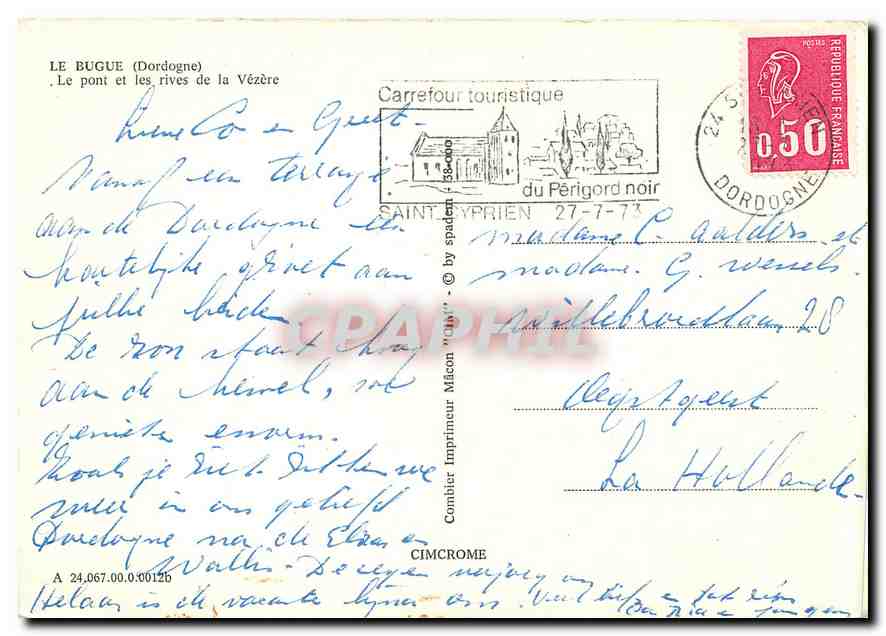 LE BUGUE (Dordogne)
Le pont et les rives de la Vézère
Lieve Co en Greet-
Vanaf een terrasje
aan de Dordogne een
hartelijke groet aan
jullie beiden.
De zon staat hoog
aan de hemel, we
genieten enorm.
Zoals je ziet zitten we
weer in ons geliefd
Dordogne na de Elzas en
Wallis-
Helaas is de vacantie bijna om. Veel liefs
A 24.067.00.0.0012b
CIMCROME
Combier Imprimeur Mâcon "CIM" - © by spadem - 38-000
Carrefour touristique
du Périgord noir
SAINT CYPRIEN 27-7-73
24 S
DORDOGNE
POSTES
REPUBLIQUE FRANÇAISE
0,50
madame C. Aalders et
madame. G. Wessels.
Willebrordlaan 28
Oegstgeest
La Hollande-
CPAPHIL